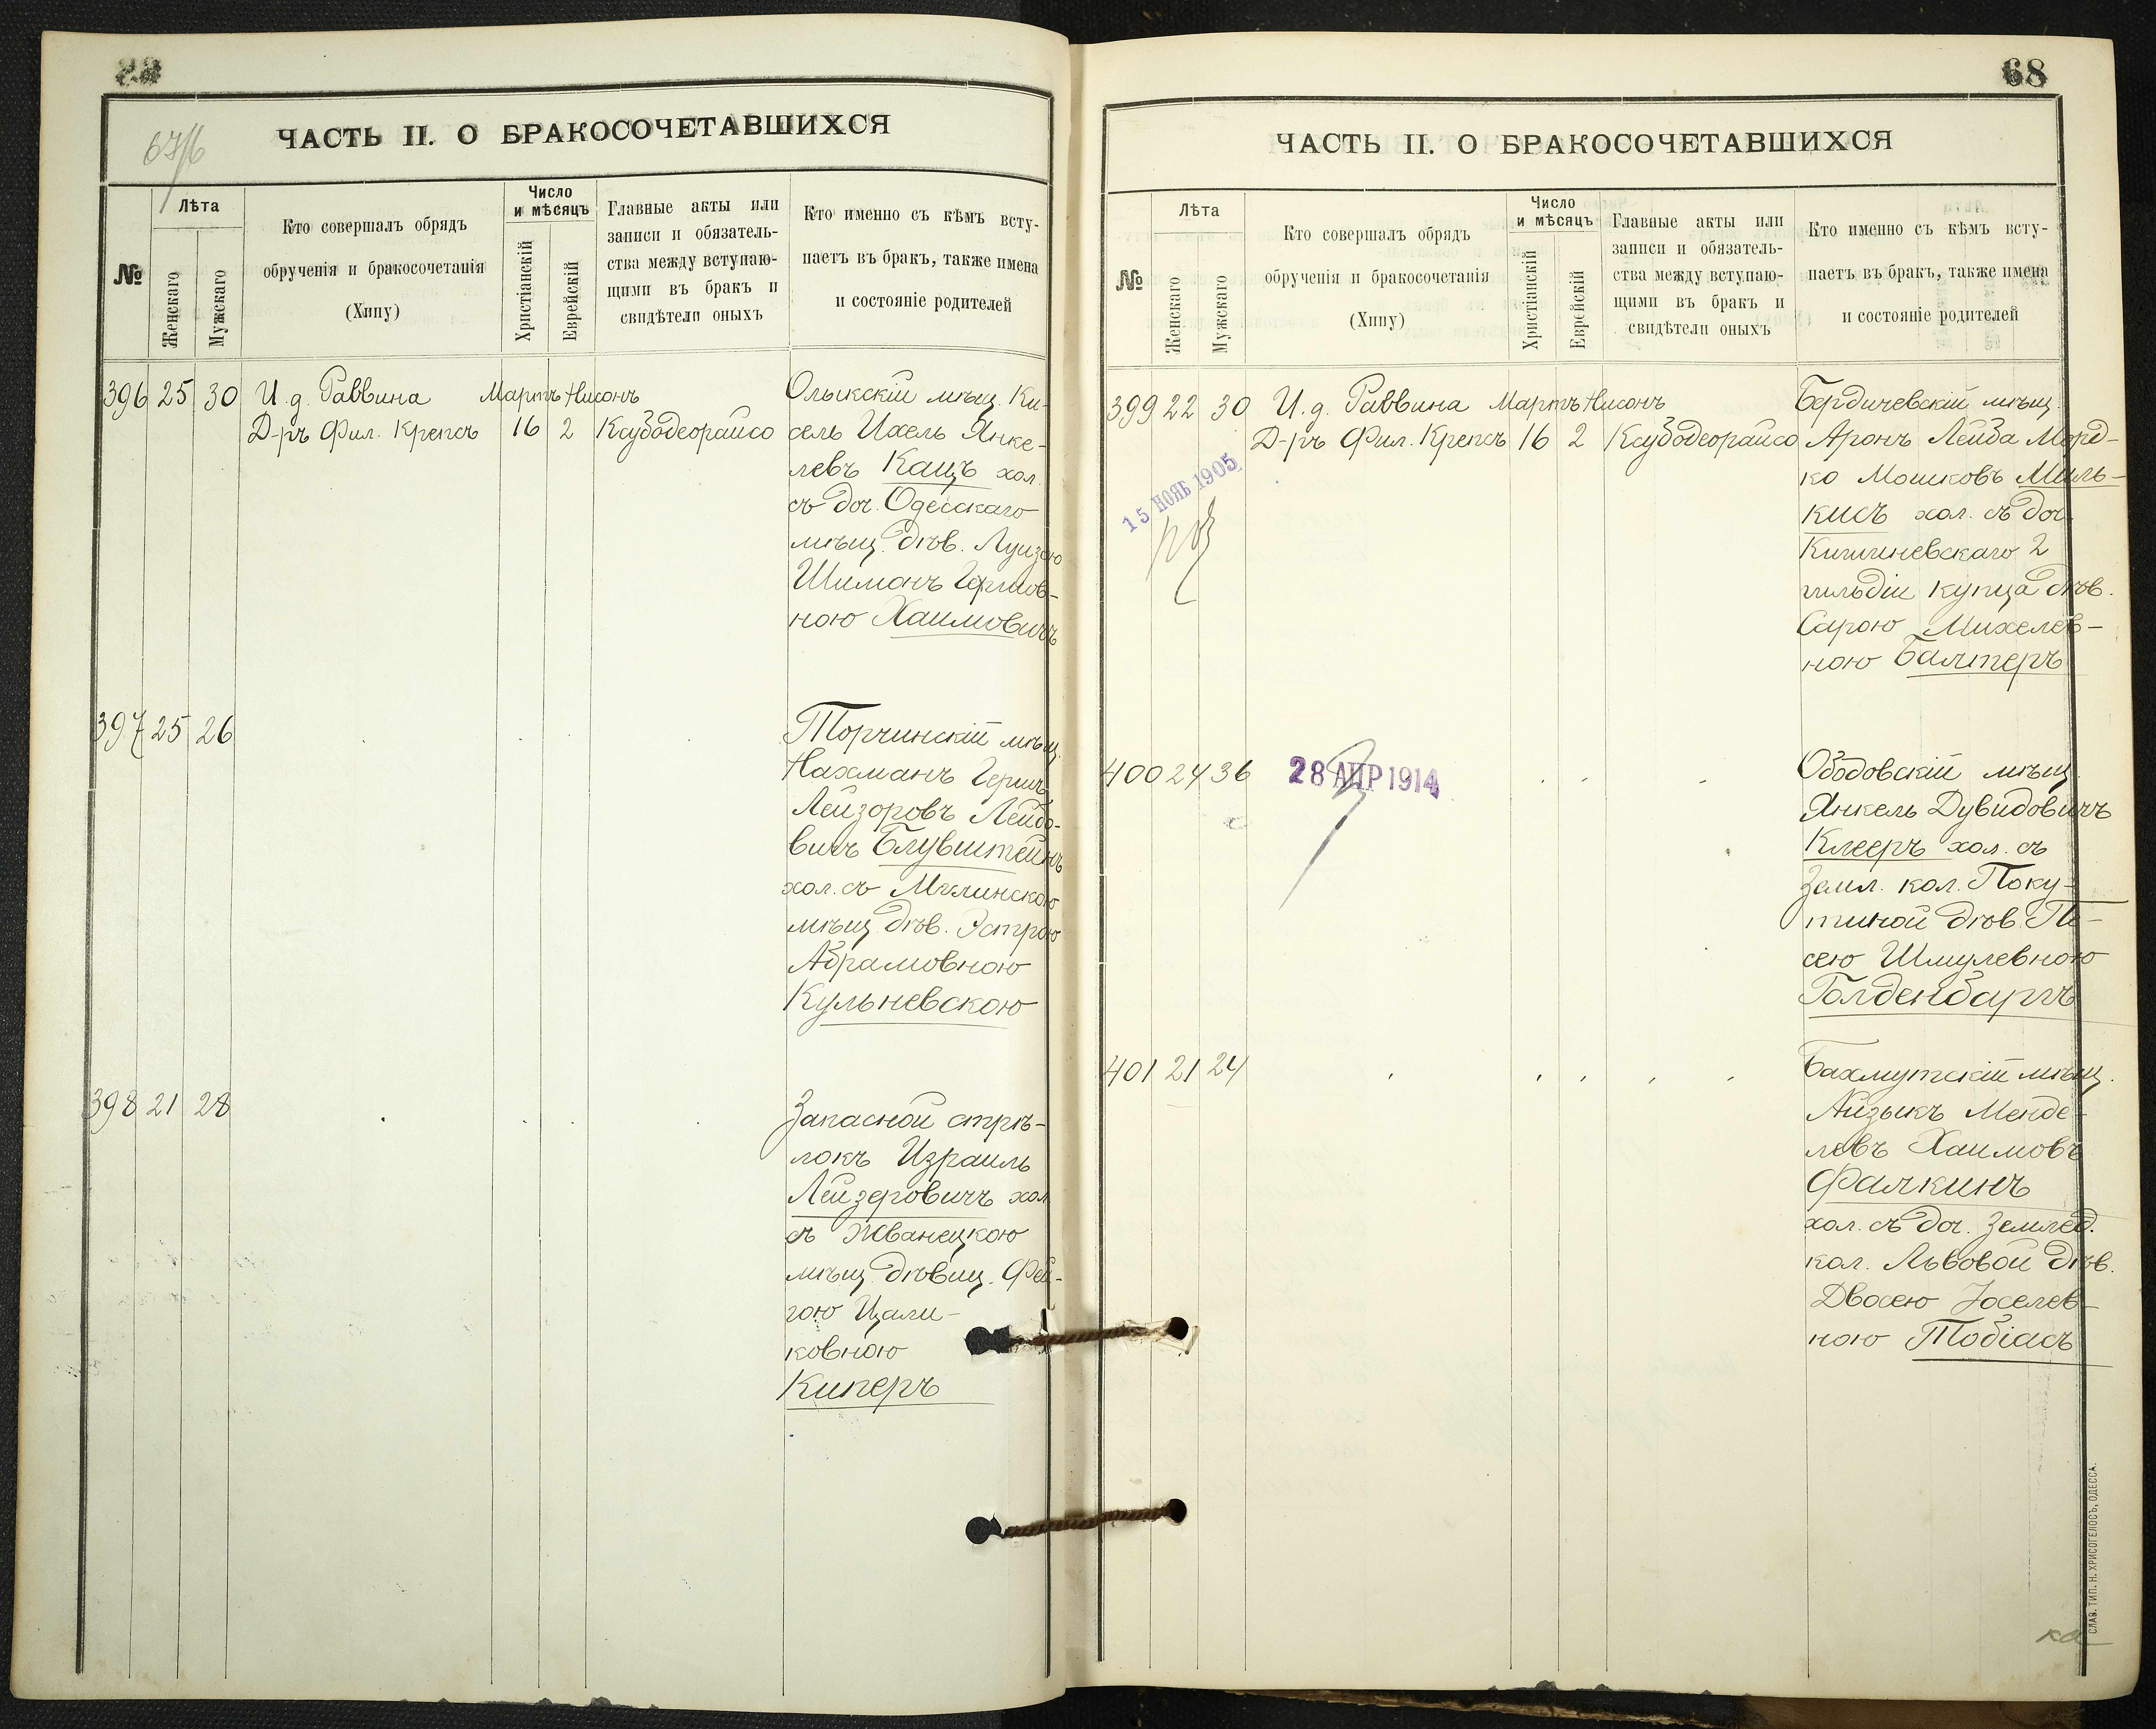 67/6
ЧАСТЬ II. О БРАКОСОЧЕТАВШИХСЯ
№
Лѣта
Женскаго
Мужскаго
Кто совершалъ обрядъ
обрученія и бракосочетанія
(Хипу)
Число
и мѣсяцъ
Христіанскій
Еврейскій
Главные акты или
записи и обязатель-
ства между вступаю-
щими въ бракъ и
свидѣтели оныхъ
Кто именно съ кѣмъ всту-
паетъ въ бракъ, также имена
и состояніе родителей
396 25 30 И. д. Раввина Мартъ Нисонъ
Д-ръ Фил. Крепсъ 16 2 Ксубодеорайсо
Олыкскій мѣщ. Ки-
сель Ихель Янке-
левъ Кацъ хол.
съ доч. Одесскаго
мѣщ. дѣв. Луизою
Шиманъ Герцов-
ною Хаимовичъ
397 25 26
Торчинскій мѣщ.
Нахманъ Гершъ
Лейзоровъ Лейбо-
вичъ Блувштейнъ
хол. съ Мглинскою
мѣщ. дѣв. Эстрою
Абрамовною
Кульневскою
398 21 28
Запасной стрѣ-
локъ Израиль
Лейзеровичъ хол
съ Жванецкою
мѣщ. дѣвиц. Фей-
гою Цали-
ковною
Киперъ
68
ЧАСТЬ II. О БРАКОСОЧЕТАВШИХСЯ
№
Лѣта
Женскаго
Мужскаго
Кто совершалъ обрядъ
обрученія и бракосочетанія
(Хипу)
Число
и мѣсяцъ
Христіанскій
Еврейскій
Главные акты или
записи и обязатель-
ства между вступаю-
щими въ бракъ и
свидѣтели оныхъ
Кто именно съ кѣмъ всту-
паетъ въ бракъ, также имена
и состояніе родителей
399 22 30 И. д. Раввина Мартъ Нисонъ
Д-ръ Фил. Крепсъ 16 2 Ксубодеорайсо
15 НОЯБ 1905
Бердичевскій мѣщ.
Аронъ Лейба Морд-
ко Мошковъ Миль-
кисъ хол. съ доч.
Кишиневскаго 2
гильдіи купца дѣв.
Сарою Михелев-
ною Балтеръ
400 24 36
28 АПР 1914
Ободовскій мѣщ.
Янкель Дувидовичъ
Клееръ хол. съ
Земл. кол. Поку-
тиной дѣв. Пе-
сею Шмулевною
Голденбаргъ
401 21 24
Бахмутскій мѣщ.
Айзыкъ Менде-
левъ Хаимовъ
Фалкинъ
хол. съ доч. Землед.
кол. Львовой дѣв.
Двосею Іоселев-
ною Тобіасъ
СЛАВ. ТИП. Н. ХРИСОГЕЛОСЪ, ОДЕССА.